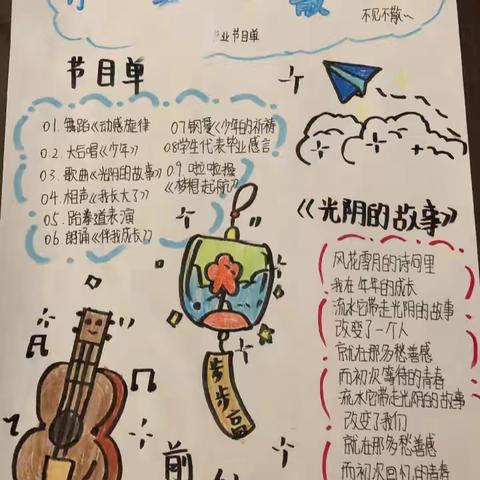 散
不见不散~
毕业节目单
节目单
01. 舞蹈《动感旋律
02. 大合唱《少年》
03. 歌曲《光阴的故事》
04. 相声《我长大了》
05. 跆拳道表演
06. 朗诵《伴我成长》
07钢琴《少年的祈祷
08学生代表毕业感言
09. 啦啦操
《梦想起航》
《光阴的故事》
风花雪月的诗句里
我在年年的成长
流水它带走光阴的故事
改变了一个人
就在那多愁善感
而初次等待的青春
流水它带走光阴的故事
改变了我们
就在那多愁善感
而初次回忆的青春
步步高
前